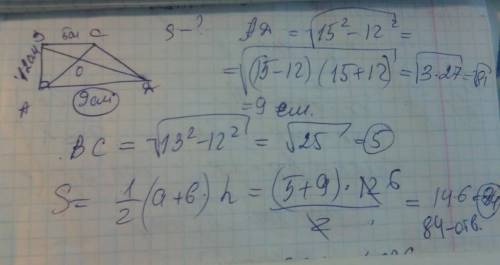 B 5см C
12см
O
A 9см Д
S - ?
АД = √15² - 12² =
= √(15-12)(15+12) = √3·27 = √81
= 9 см.
BC = √13² - 12² = √25 = 5
S = 1/2 (a+b)·h = (5+9)·12 6 / 2 = 14·6 = 84
84 - отв.